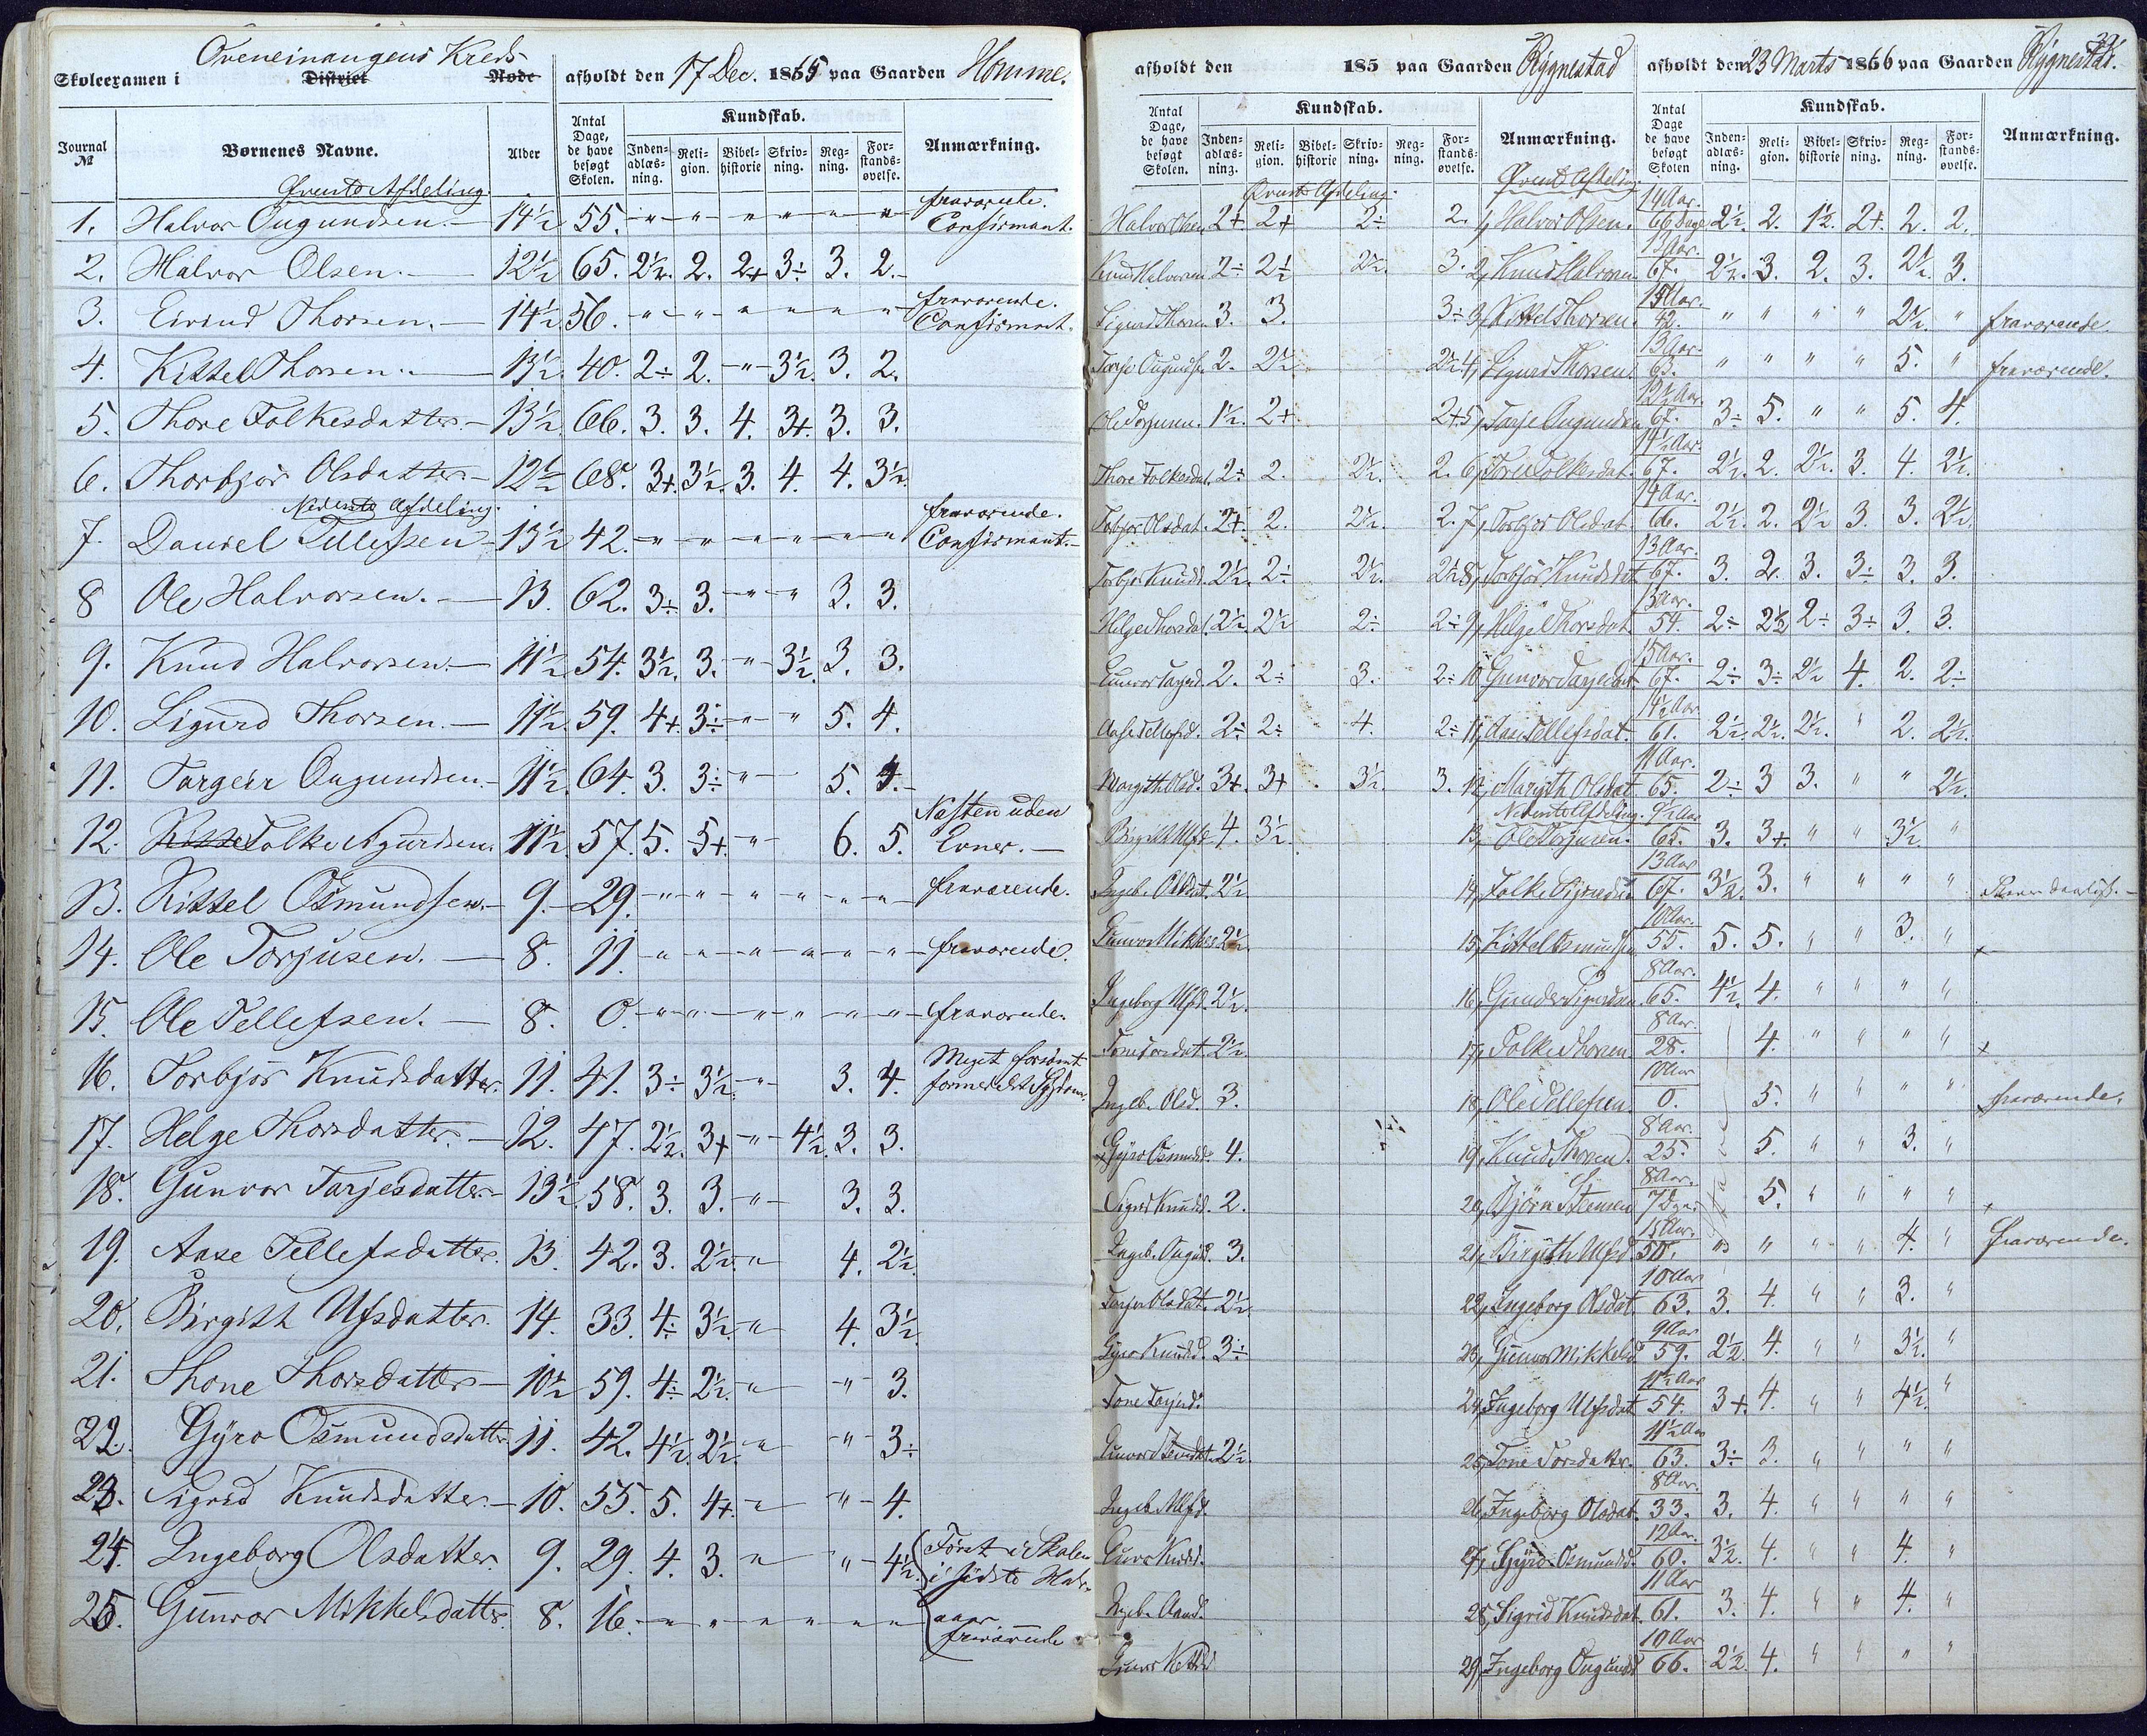 Skoleexamen i Distrikt Rode afholdt den 17 Dec. 1865 paa Gaarden Homme.
Journal № Børnenes Navne. Alder Antal Dage, de have besøgt Skolen. Kundskab. Anmærkning.
Inden-adlæs-ning. Reli-gion. Bibel-historie Skriv-ning. Reg-ning. For-stands-øvelse.
Øverste Afdeling.
1. Halvor Ougundsen. 14½ 55. " " " " " " fraværende. Confirmant.
2. Halvor Olsen. 12½ 65. 2½. 2. 2+ 3÷ 3. 2.
3. Eivind Thorsen. 14½ 56. " " " " " " fraværende. Confirmant.
4. Kittel Thorsen. 13½ 40. 2÷ 2. " 3½. 3. 2.
5. Thore Folkesdatter 13½ 66. 3. 3. 4. 3+. 3. 3.
6. Thorbjør Olsdatter 12½ 68. 3+. 3½. 3. 4. 4. 3½.
Nederste Afdeling.
7. Daniel Tellefsen 13½ 42. " " " " " " fraværende. Confirmant.
8 Ole Halvorsen. 13. 62. 3÷ 3. " " 3. 3.
9. Knud Halvorsen. 11½ 54. 3½. 3. " 3½. 3. 3.
10. Sigurd Thorsen. 11½. 59. 4+. 3÷ " " 5. 4.
11. Targeir Ougundsen. 11½. 64. 3. 3÷ " 5. 4.
12. Folke Sigurdsen. 11½. 57. 5. 5+. " 6. 5. Næsten uden Evner.
13. Kittel Osmundsen. 9. 29. " " " " " " fraværende.
14. Ole Torjusen. 8. 11. " " " " " " fraværende.
15. Ole Tellefsen. 8. 0. " " " " " " fraværende.
16. Torbjør Knudsdatter. 11. 41. 3÷ 3½. " 3. 4. Meget forsømt formedelst Sygdom.
17. Helge Thorsdatter. 12. 47. 2½. 3+ " 4½. 3. 3.
18. Gunvor Tarjesdatter 13½. 58. 3. 3. " 3. 3.
19. Aase Tellefsdatter. 13. 42. 3. 2½. " 4. 2½.
20. Birgith Ulfsdatter. 14. 33. 4÷ 3½. " 4. 3½.
21. Thone Thorsdatter 10½ 59. 4÷ 2½. " " 3.
22. Gyro Osmundsdatter 11. 42. 4½. 2½. " " 3÷
23. Sigrid Knudsdatter. 10. 55. 5. 4+. " " 4.
24. Ingeborg Olsdatter. 9. 29. 4. 3. " " 4½. Først i Skolen i sidste Halv-
25. Gunvor Mikkelsdatter. 8. 16. " " " " " " aar fraværende
afholdt den 185 paa Gaarden Rygnestad
Antal Dage, de have besøgt Skolen. Kundskab. Anmærkning.
Inden-adlæs-ning. Reli-gion. Bibel-historie Skriv-ning. Reg-ning. For-stands-øvelse.
Øverste Afdeling.
Halvor Olsen 2+ 2+ 2÷ 2.
Knud Halvorsen 2÷ 2½ 2½. 3.
Sigurd Thorsen 3. 3. 3÷
Tarje Ougunds. 2. 2½ 2½
Ole Torjusen. 1½. 2+. 2+
Thore Folkesdat. 2÷ 2. 2½. 2.
Torbjør Olsdat. 2+. 2. 2½. 2.
Torbjør Knudsd. 2½. 2÷ 2½. 2½
Helge Thorsdat. 2½. 2½ 2÷ 2÷
Gunvor Tarjesd. 2. 2÷ 3. 2÷
Aase Tellefsd. 2÷ 2÷ 4. 2÷
Margith Olsd. 3+. 3+ 3½. 3.
Birgith Ulfsd. 4. 3½.
Ingeb. Olsdat. 2½.
Gunvor Mikkelsd. 2½.
Ingeborg Ulfsd. 2½.
Tone Torsdat. 2½.
Ingeb. Olsd. 3.
Gyro Osmundsd. 4.
Sigrid Knudsd. 2.
Ingeb. Ougunds. 3.
Torjer Olsdat. 2½.
Gyro Knudsd. 3÷
Tone Torjusd.
Gunvor 2½.
Ingeb. Ulfsd.
Guro Knudsd.
Ingeb.
Gunvor
afholdt den 23 Marts 1866 paa Gaarden Rygnestad.
Antal Dage de have besøgt Skolen Kundskab. Anmærkning.
Inden-adlæs-ning. Reli-gion. Bibel-historie Skriv-ning. Reg-ning. For-stands-øvelse.
Øverste Afdeling.
1, Halvor Olsen. 14 Aar. 66 Dage 2½. 2. 1½. 2+. 2. 2.
2, Knud Halvorsen 13 Aar. 67. 2½. 3. 2. 3. 2½. 3.
3, Kittel Thorsen. 15 Aar. 42. " " " " 2½. " fraværende
4, Sigurd Thorsen. 13 Aar. 65. " " " " 5. " fraværende.
5, Tarje Ougundsen 12½ Aar. 67. 3÷ 5. " " 5. 4.
6, Tore Folkesdat. 14½ Aar. 67. 2½. 2. 2½. 3. 4. 2½.
7, Torbjør Olsdat. 14 Aar. 66. 2½. 2. 2½ 3. 3. 2½.
8, Torbjør Knudsdat 13 Aar. 67. 3. 2. 3. 3÷ 3. 3.
9, Helge Thorsdat. 13 Aar. 54. 2÷ 2½ 2÷ 3÷ 3. 3.
10 Gunvor Tarjesdat. 15 Aar. 67. 2÷ 3÷ 2½ 4. 2. 2÷
11, Aase Tellefsdat. 14½ Aar 61. 2½. 2½. 2½. " 2. 2½.
12, Margith Olsdat. 11 Aar. 65. 2÷ 3 3. " " 2½.
Nederste Afdeling.
13, Ole Torjusen. 9½ Aar 65. 3. 3+. " " 3½. "
14, Folke Sigurdsen 13 Aar 67. 3½. 3. " " " "
15, Kittel Osmundsen 10 Aar. 55. 5. 5. " " 3. "
16, Gunder Sigurdsen. 8 Aar. 65. 4½. 4. " " " "
17, Folke Thorsen 8 Aar. 28. 4. " " " " x
18, Ole Tellefsen. 10 Aar 0. 5. " " " " fraværende.
19, Knud Thorsen. 8 Aar. 25. 5. " " 3. "
20, Bjørn Steensen 8 Aar. 7 Dage 5. " " " "
21, Birgith Ulfsd. 15 Aar. 50. " " " " 4. " Fraværende.
22, Ingeborg Olsdat 10 Aar 63. 3. 4. " " 3. "
23, Gunvor Mikkelsd. 9 Aar 59. 2½. 4. " " 3½. "
24, Ingeborg Ulfsdat 11½ Aar 54. 3+. 4. " " 4½. "
25, Tone Torsdatter. 11½ Aar 63. 3÷ 3. " " " "
26, Ingeborg Olsdat. 8 Aar. 33. 3. 4. " " " "
27, Gyro Osmundsd. 12 Aar. 60. 3½. 4. " " 4. "
28, Sigrid Knudsdat. 11 Aar 61. 3. 4. " " 4. "
29, Ingeborg Ougundsd 10 Aar 66. 2½. 4. " " " "